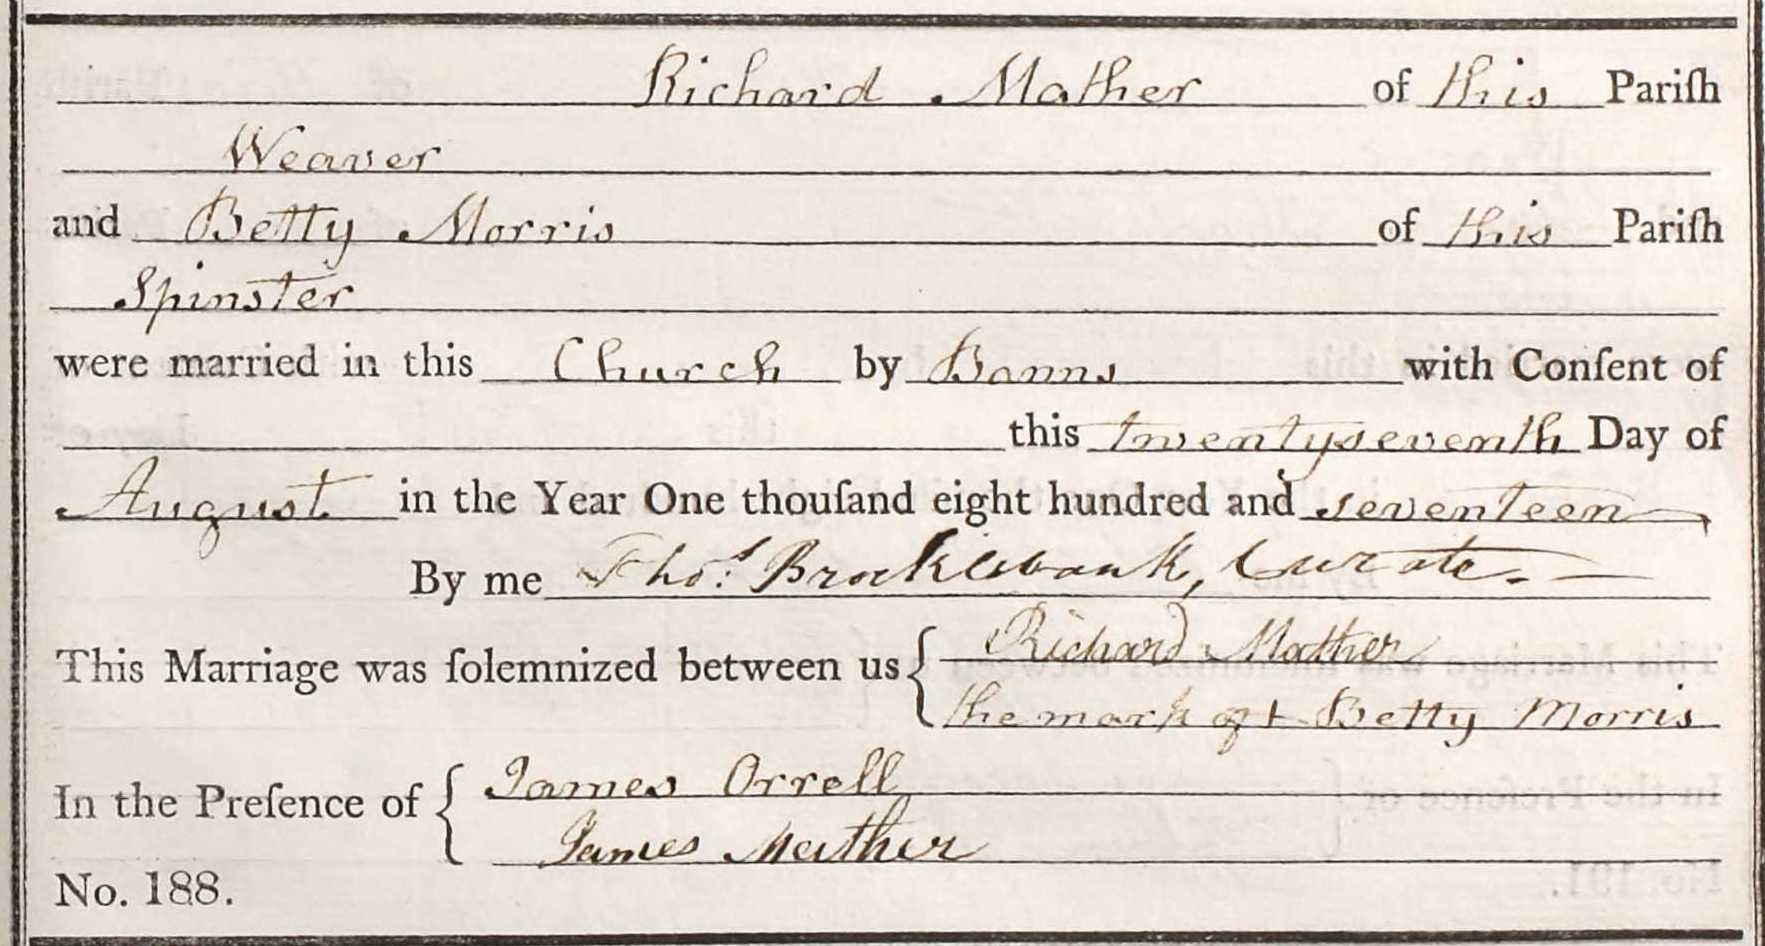 Richard Mather of this Pariſh
Weaver
and Betty Morris of this Pariſh
Spinster
were married in this Church by Banns with Conſent of
this twentyseventh Day of
August in the Year One thouſand eight hundred and seventeen
By me Thos. Brocklebank, Curate. —
This Marriage was ſolemnized between us { Richard Mather
the mark of + Betty Morris
In the Preſence of { James Orrell
James Mather
No. 188.